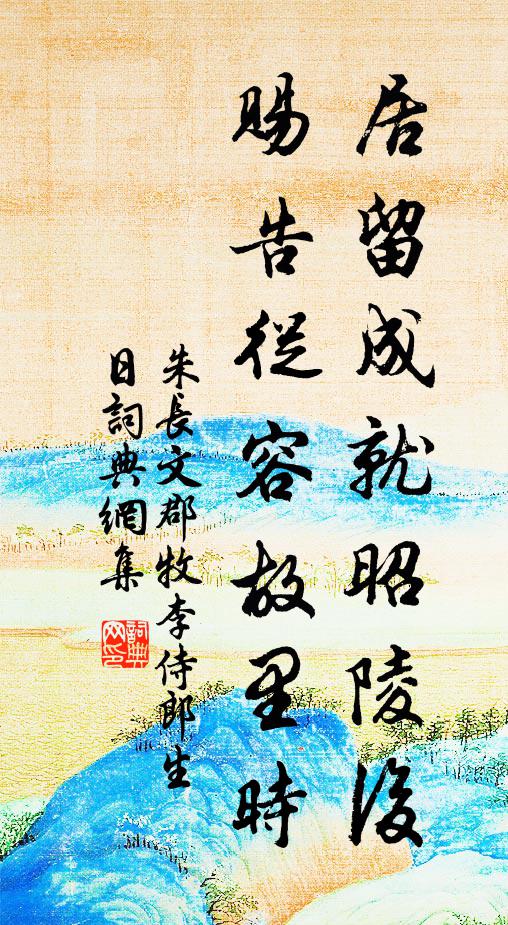 居留成就昭陵後
賜告從容故里時
朱長文郡牧李侍郎生
日詞典網集
詞典網印